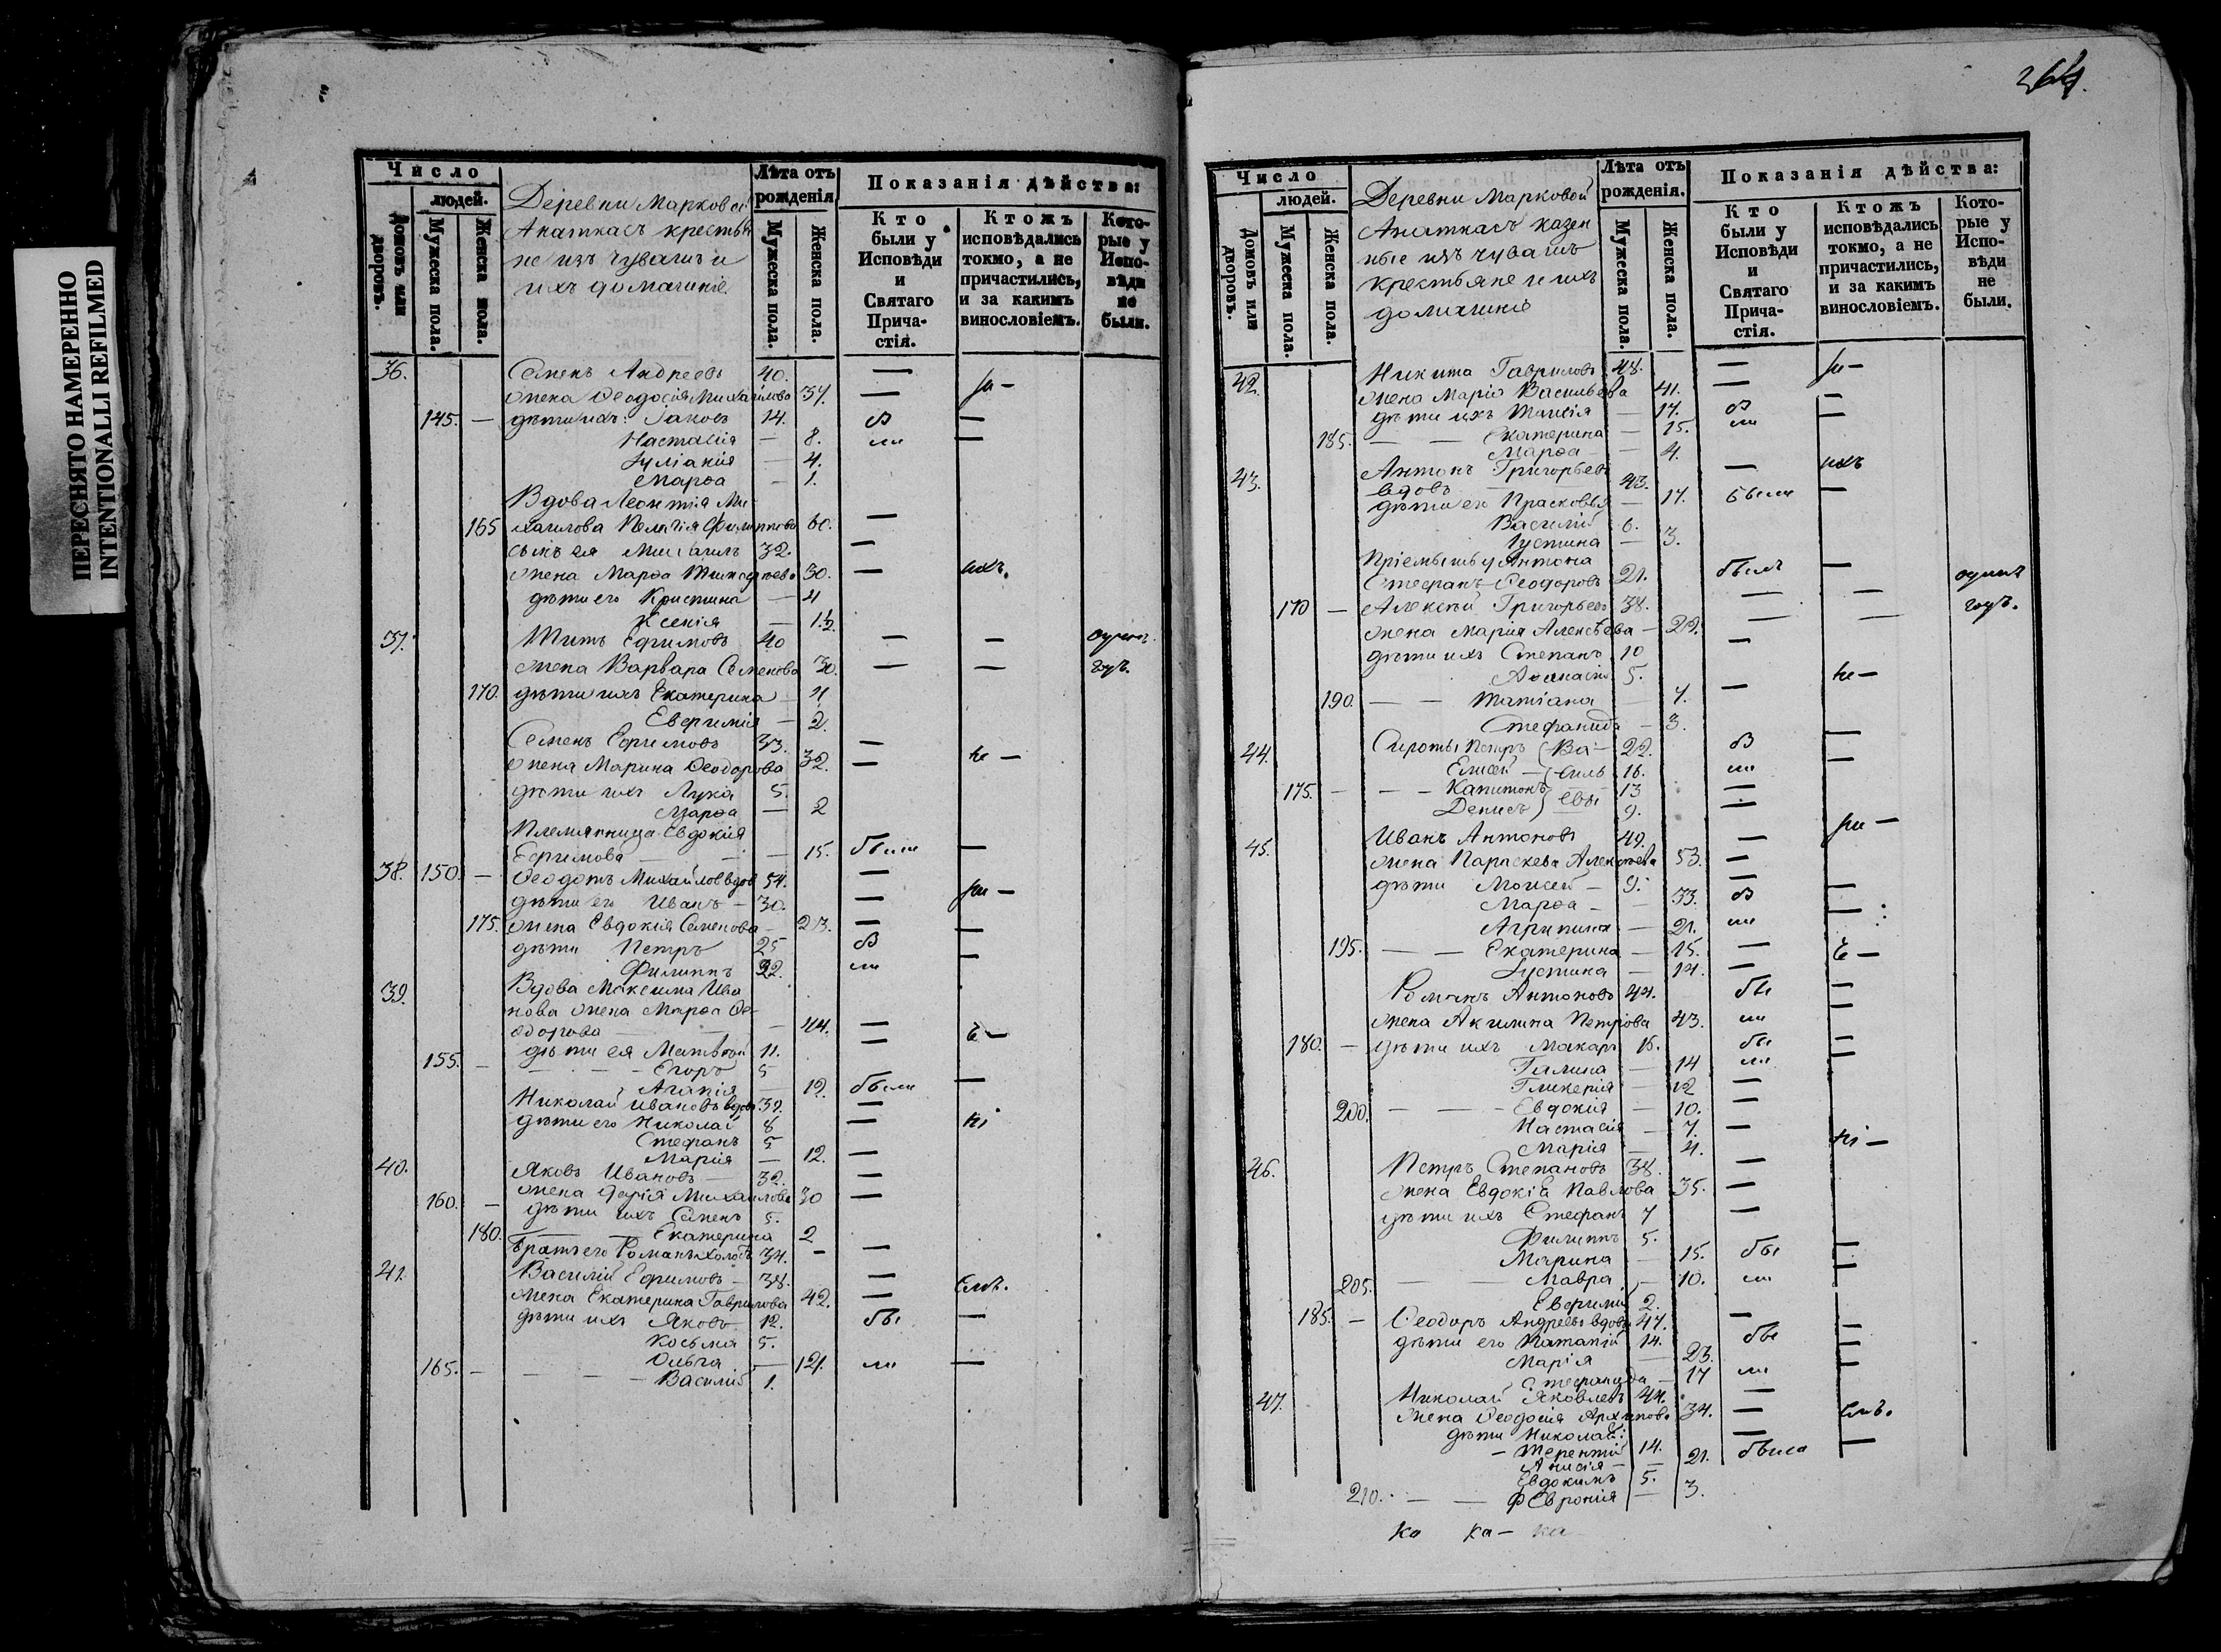 ПЕРЕСНЯТО НАМЕРЕННО
INTENTIONALLI REFILMED
Число
людей.
Домовъ или дворовъ.
Мужеска пола.
Женска пола.
Деревни Марковой
Анаткасъ крестья
не изъ чувашъ и
ихъ домашніе
Лѣта отъ рожденія
Мужеска пола.
Женска пола.
Показанія дѣйства:
Кто были у Исповѣди и Святаго Прича-стія.
Ктожъ исповѣдались токмо, а не причастились, и за какимъ винословіемъ.
Кото-рые у Испо-вѣди не были.
36. Семенъ Андреевъ 40. —
жена Ѳеодосія Михайлова 37. —
145. — дѣти ихъ: Іаковъ 14. —
Настасія — 8. —
Іуліанія — 4.
Марѳа — 1.
Вдова Леонтія Ми
165 хайлова Пелагія Филиппова 60. —
сынъ ея Михаилъ 32. —
жена Марѳа Тимофеева 30. — ихъ.
дѣти его Кристина — 4
Ксенія — 1½
37. Титъ Ефимовъ 40 — —
жена Варвара Семенова 30. — — годъ.
170. дѣти ихъ Екатерина — 4
Евфимія — 2.
Семенъ Ефимовъ 33. —
жена Марина Ѳеодорова 32. — не —
дѣти ихъ Лука 5.
Марѳа — 2
Племянница Евдокія
Ефимова — — 15. были —
38. 150. — Ѳеодотъ Михайловъ вдов 54. —
дѣти его Иванъ — 30. —
175. жена Евдокія Семенова — 23. — —
дѣти Петръ 25 —
Филиппъ 22. —
39. Вдова Максима Ива
нова жена Марѳа Ѳе
одорова — — 44. —
155. — дѣти ея Матвѣй 11. —
— — — Егоръ 5
Агапія — 12. были —
Николай Ивановъ вдовъ 39. —
дѣти его Николай 8 —
Стефанъ 5
Марія — 12. —
40. Яковъ Ивановъ — 32. —
жена Дарія Михайлова 30 —
160. — дѣти ихъ Семенъ 5.
180. — — Екатерина 2
Братъ его Романъ холостъ 34. — —
41. Василій Ефимовъ — 38. —
жена Екатерина Гаврилова 42. —
дѣти ихъ Яковъ 12. бы —
Косьма 5.
Ольга — 14. ли —
165. — — — — Василій 1.
264.
Число
людей.
Домовъ или дворовъ.
Мужеска пола.
Женска пола.
Деревни Марковой
Анаткасъ казен
ные изъ чувашъ
крестьяне и ихъ
домашніе
Лѣта отъ рожденія.
Мужеска пола.
Женска пола.
Показанія дѣйства:
Кто были у Исповѣди и Святаго Прича-стія.
Ктожъ исповѣдались токмо, а не причастились, и за какимъ винословіемъ.
Кото-рые у Испо-вѣди не были.
42. Никита Гавриловъ 48. —
жена Марія Васильева 41. —
дѣти ихъ — 17. —
185. — — Екатерина — 15. —
Марѳа — — 4.
43. Антонъ Григорьевъ — ихъ
вдовъ — 43.
дѣти его Прасковья — 17. были —
Василій 6.
Іустина — 3.
Пріемышъ у Антона
Стефанъ Ѳеодоровъ 21. былъ — одинъ
170 — Алексѣй Григорьевъ 38. — — годъ.
жена Марія Алексѣева — 29. — —
дѣти ихъ Степанъ 10 —
Аѳанасій 5. не —
190. — — Татіана — 7. —
Стефанида — 3.
44. Сироты Петръ (Ва- 22. —
Елисей — силь 16. —
175. — — — Капитонъ 13 —
Денисъ) евы 9. —
45. Иванъ Антоновъ 49. —
жена Параскева Алексѣева 53. —
дѣти Моисей — 9. —
Марѳа — — 33. —
Агрипина — 21. —
195. — — Екатерина — 15. —
Іустина — 14. —
Романъ Антоновъ 44. бы —
жена Акилина Петрова 43. ли —
180. — дѣти ихъ Макаръ 15. бы —
Галина — 14 ли —
Гликерія — 12 —
200. — — — Евдокія — 10. —
Настасія — 7. —
Марія — 4.
46. Петръ Степановъ 38. —
жена Евдокія Павлова 35. —
дѣти ихъ Стефанъ 7 —
Филиппъ 5.
Марина — 15. бы —
205. — — Мавра — 10. ли —
Евфимій 2.
185. — Ѳеодоръ Андреевъ вдовъ 47. —
дѣти его 14. бы —
Марія — 23. —
Стефанида — 17 ли —
47. Николай Яковлевъ 44. —
жена Ѳеодосія Архипова 34. —
дѣти Николая: —
— Терентій 14.
Анисія — — 21. была —
Евдокимъ 5.
210. — — Февронія — 3.
ка ка — ка